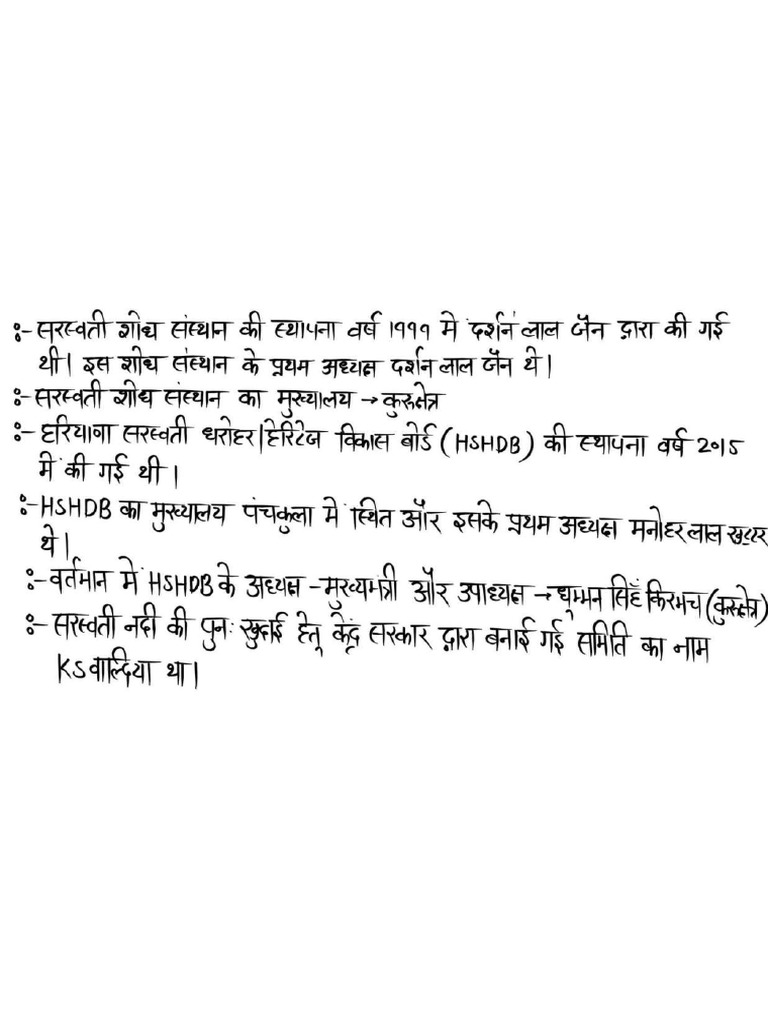 :- सरस्वती शोध संस्थान की स्थापना वर्ष 1999 मे दर्शन लाल जैन द्वारा की गई
थी। इस शोध संस्थान के प्रथम अध्यक्ष दर्शन लाल जैन थे।
:- सरस्वती शोध संस्थान का मुख्यालय → कुरुक्षेत्र
:- हरियाणा सरस्वती धरोहर/हेरिटेज विकास बोर्ड (HSHDB) की स्थापना वर्ष 2015
मे की गई थी।
:- HSHDB का मुख्यालय पंचकुला मे स्थित और इसके प्रथम अध्यक्ष मनोहर लाल खट्टर
थे।
:- वर्तमान में HSHDB के अध्यक्ष - मुख्यमंत्री और उपाध्यक्ष → धुम्मन सिंह किरमच (कुरुक्षेत्र)
:- सरस्वती नदी की पुनः खुदाई हेतू केंद्र सरकार द्वारा बनाई गई समिति का नाम
KS वाल्दिया था।